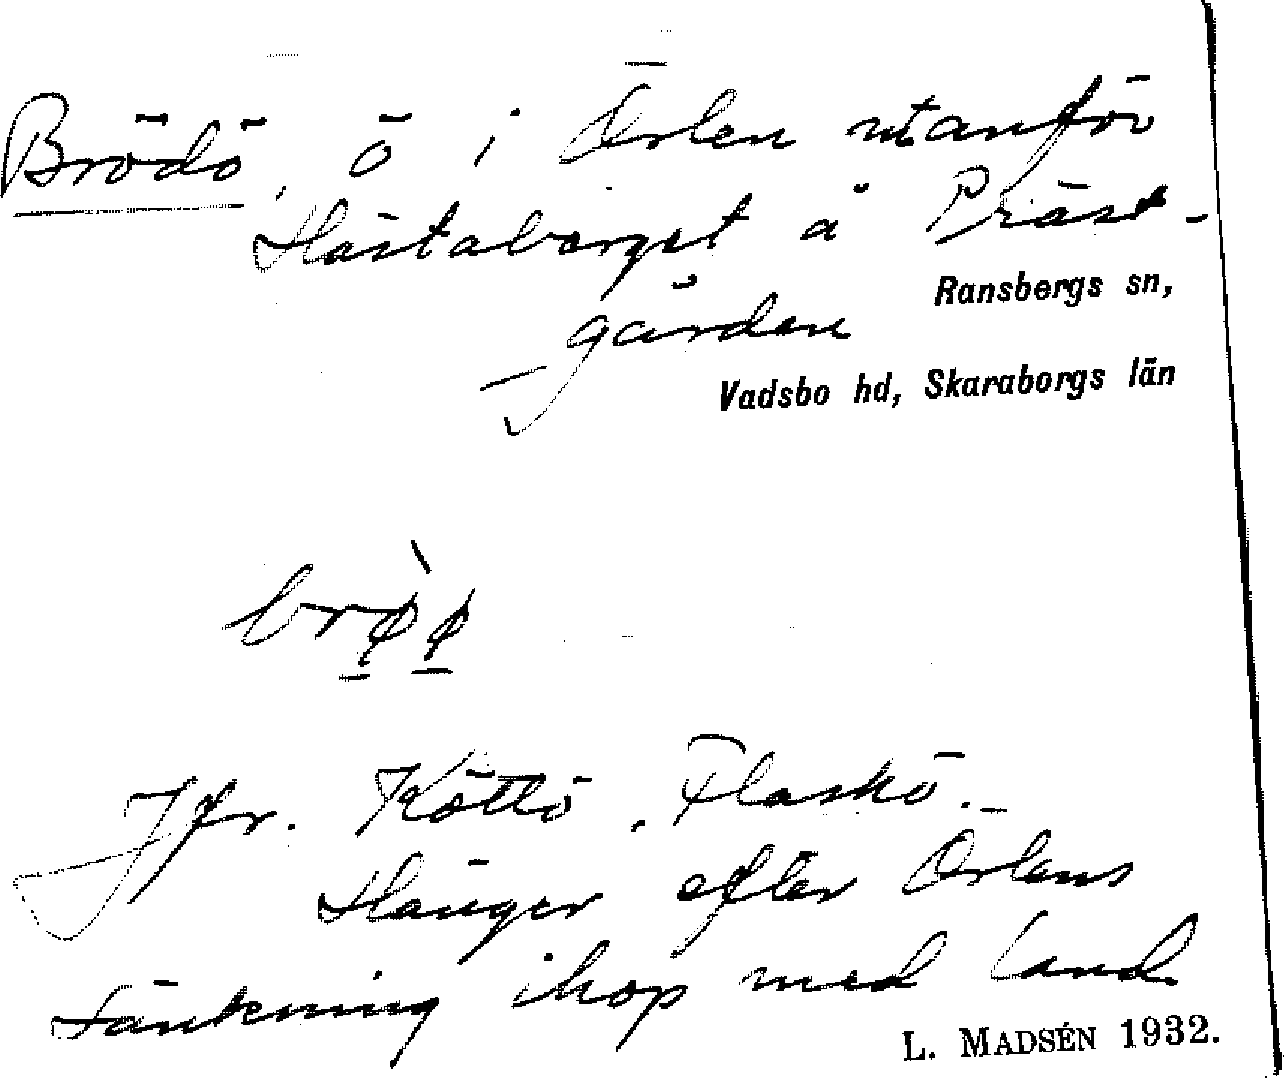 Brödö, ö i Örlen utanför
Hästaberget å Präst-
gården
Ransbergs sn,
Vadsbo hd, Skaraborgs län
Jfr. Köttö, Flaskö. –
Hänger efter Örlens
sänkning ihop med land.
L. MADSÉN 1932.